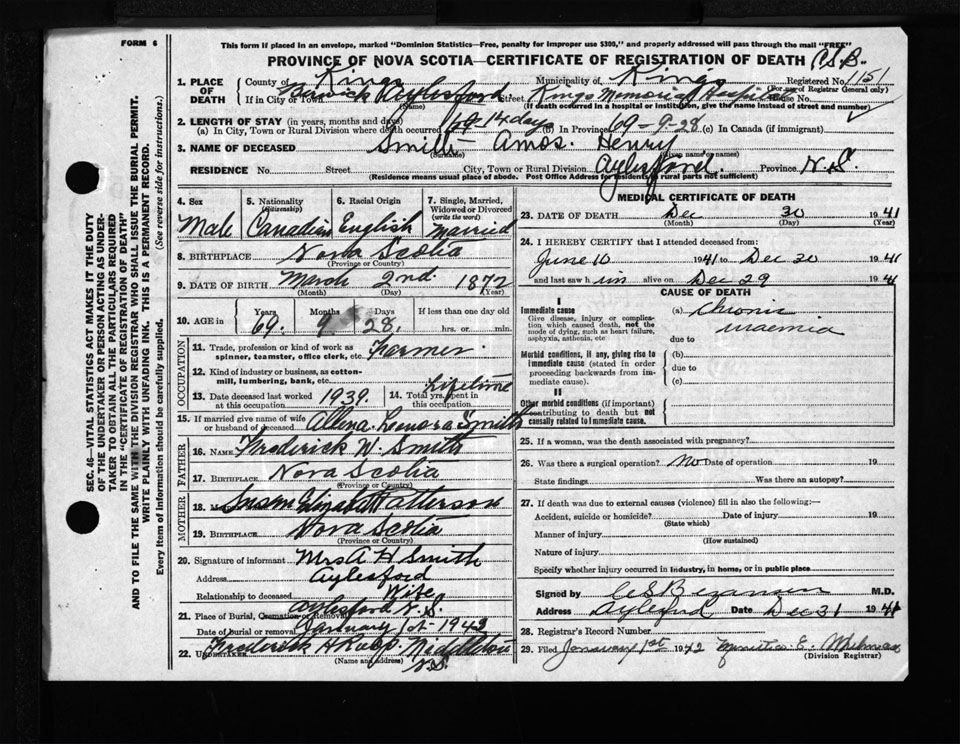 FORM 6
This form if placed in an envelope, marked "Dominion Statistics—Free, penalty for improper use $300," and properly addressed will pass through the mail "FREE"
PROVINCE OF NOVA SCOTIA—CERTIFICATE OF REGISTRATION OF DEATH
1. PLACE OF DEATH County of Kings Municipality of Kings Registered No. 1151
(For use of Registrar General only)
If in City or Town Berwick Aylesford Street Kings Memorial Hospital House No.
(Name) (If death occurred in a hospital or institution, give the name instead of street and number)
2. LENGTH OF STAY (in years, months and days)
(a) In City, Town or Rural Division where death occurred 14 days (b) In Province 69-9-28 (c) In Canada (if immigrant)
3. NAME OF DECEASED Smith Amos. Henry
(Surname) (Given name or names)
RESIDENCE No. Street City, Town or Rural Division Aylesford. Province N.S.
(Residence means usual place of abode. Post Office Address for residents in rural parts not sufficient)
4. Sex Male
5. Nationality (Citizenship) Canadian
6. Racial Origin English
7. Single, Married, Widowed or Divorced (write the word) Married
8. BIRTHPLACE Nova Scotia
(Province or Country)
9. DATE OF BIRTH March 2nd. 1872
(Month) (Day) (Year)
10. AGE in Years 69. Months 9 Days 28. If less than one day old hrs. or min.
OCCUPATION
11. Trade, profession or kind of work as spinner, teamster, office clerk, etc. Farmer.
12. Kind of industry or business, as cotton-mill, lumbering, bank, etc.
13. Date deceased last worked at this occupation 1939. 14. Total yrs. spent in this occupation Lifetime
15. If married give name of wife or husband of deceased Allena Leonora Smith
FATHER
16. NAME Frederick W. Smith
17. BIRTHPLACE Nova Scotia
(Province or Country)
MOTHER
18. Susan Elizabeth Patterson
19. BIRTHPLACE Nova Scotia
(Province or Country)
20. Signature of informant Mrs A H Smith
Address Aylesford
Relationship to deceased Wife
21. Place of Burial, Cremation or Removal Aylesford N.S.
Date of burial or removal January 1st 1942
22. UNDERTAKER Frederick H
(Name and address) N.S.
MEDICAL CERTIFICATE OF DEATH
23. DATE OF DEATH Dec 30 1941
(Month) (Day) (Year)
24. I HEREBY CERTIFY that I attended deceased from:
June 10 1941 to Dec 30 1941
and last saw him alive on Dec 29 1941
CAUSE OF DEATH
I
Immediate cause
Give disease, injury or complication, which caused death, not the mode of dying, such as heart failure, asphyxia, asthenia, etc
(a) Chronic uraemia
due to
Morbid conditions, if any, giving rise to immediate cause (stated in order proceeding backwards from immediate cause).
(b)
due to
(c)
II
Other morbid conditions (if important) contributing to death but not causally related to immediate cause.
25. If a woman, was the death associated with pregnancy?
26. Was there a surgical operation? No Date of operation 19
State findings Was there an autopsy?
27. If death was due to external causes (violence) fill in also the following:—
Accident, suicide or homicide? Date of injury 19
(State which)
Manner of injury
(How sustained)
Nature of injury
Specify whether injury occurred in industry, in home, or in public place
Signed by M.D.
Address Aylesford Date Dec 31 1941
28. Registrar's Record Number
29. Filed January 1st 1942
(Division Registrar)
SEC. 46—VITAL STATISTICS ACT MAKES IT THE DUTY
OF THE UNDERTAKER OR PERSON ACTING AS UNDER-
TAKER TO OBTAIN ALL THE PARTICULARS REQUIRED
IN THE "CERTIFICATE OF REGISTRATION OF DEATH"
AND TO FILE THE SAME WITH THE DIVISION REGISTRAR WHO SHALL ISSUE THE BURIAL PERMIT.
WRITE PLAINLY WITH UNFADING INK. THIS IS A PERMANENT RECORD.
Every item of information should be carefully supplied. (See reverse side for instructions.)